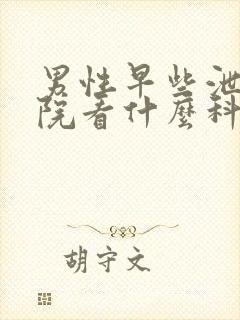 男性早些泄
院看什麼科
胡守文